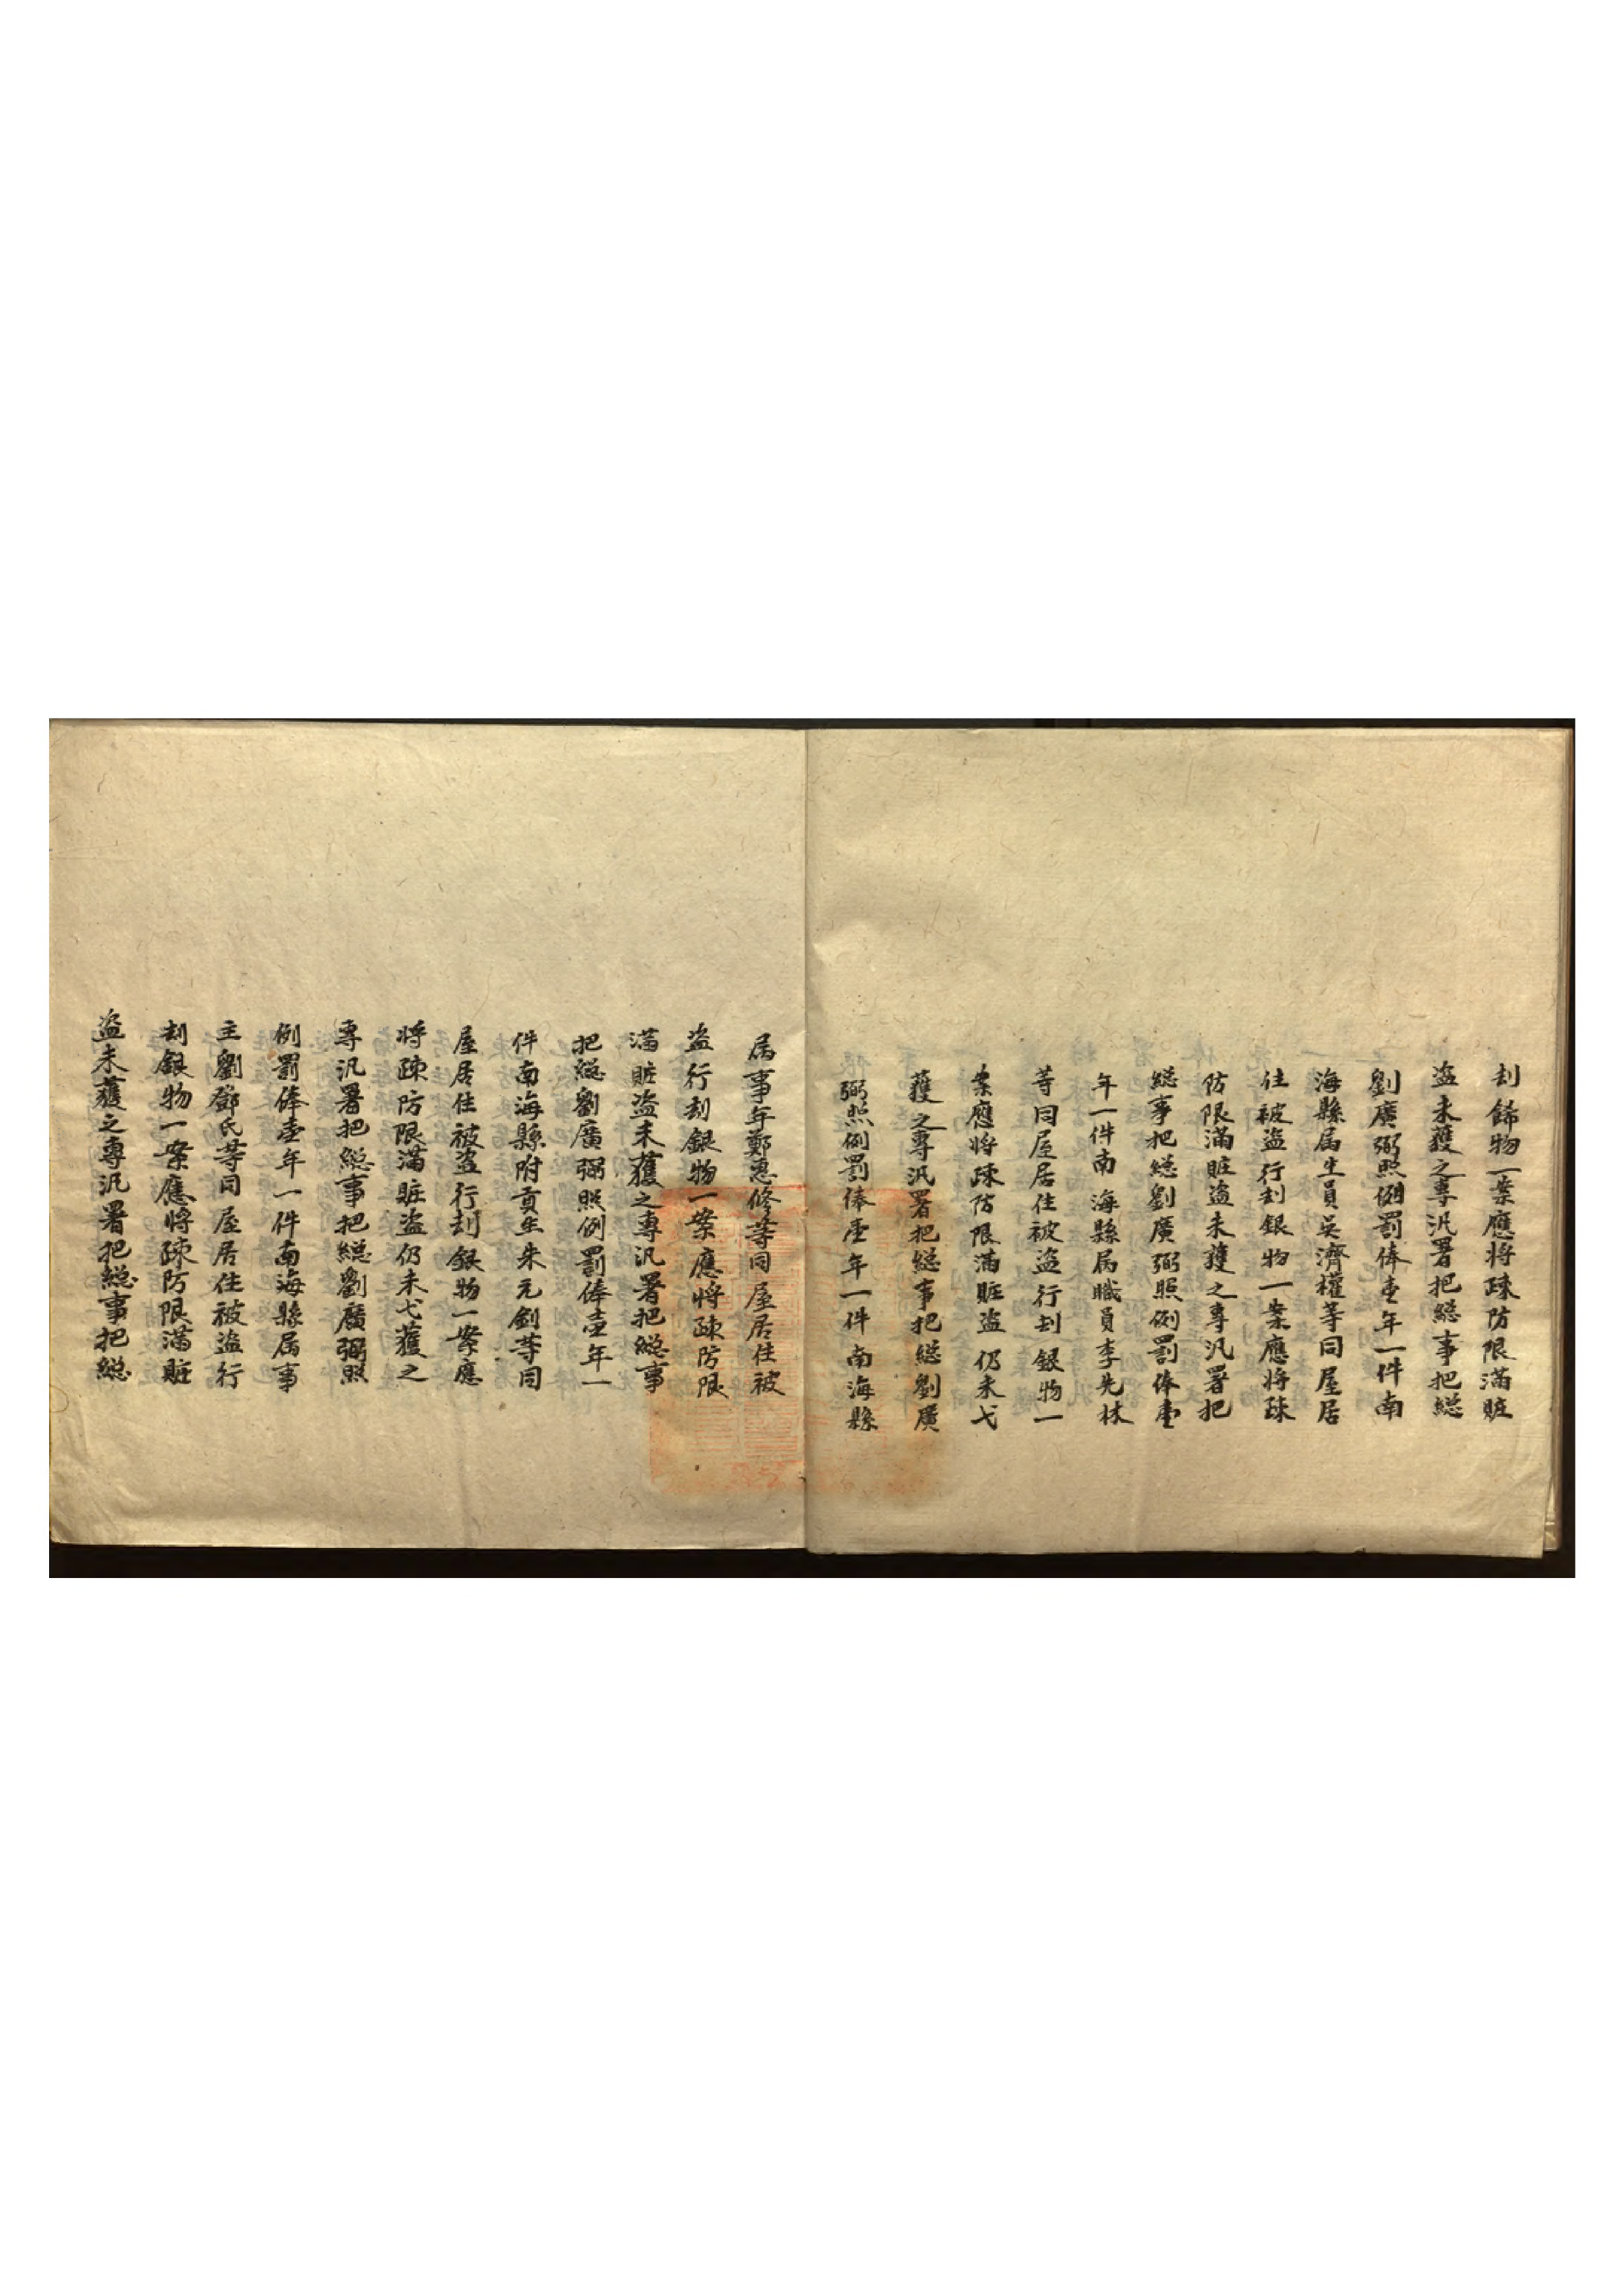 刦餙物一案應將疎防限滿賍
盗未獲之專汛署把緫事把緫
劉廣弼照例罰俸壹年一件南
海縣属生員吳濟權等同屋居
住被盗行刦銀物一案應將疎
防限滿賍盗未獲之專汛署把
緫事把緫劉廣弼照例罰俸壹
年一件南海縣属職員李先林
等同屋居住被盗行刦銀物一
案應將疎防限滿賍盗仍未弋
獲之專汛署把緫事把緫劉廣
弼照例罰俸壹年一件南海縣
属事年鄭惠修等同屋居住被
盗行刦銀物一案應將疎防限
滿賍盗未獲之專汛署把緫事
把緫劉廣弼照例罰俸壹年一
件南海縣附貢生朱元釗等同
屋居住被盗行刦銀物一案應
將疎防限滿賍盗仍未弋獲之
專汛署把緫事把緫劉廣弼照
例罰俸壹年一件南海縣属事
主劉鄧氏等同屋居住被盗行
刦銀物一案應將疎防限滿賍
盗未獲之專汛署把緫事把緫